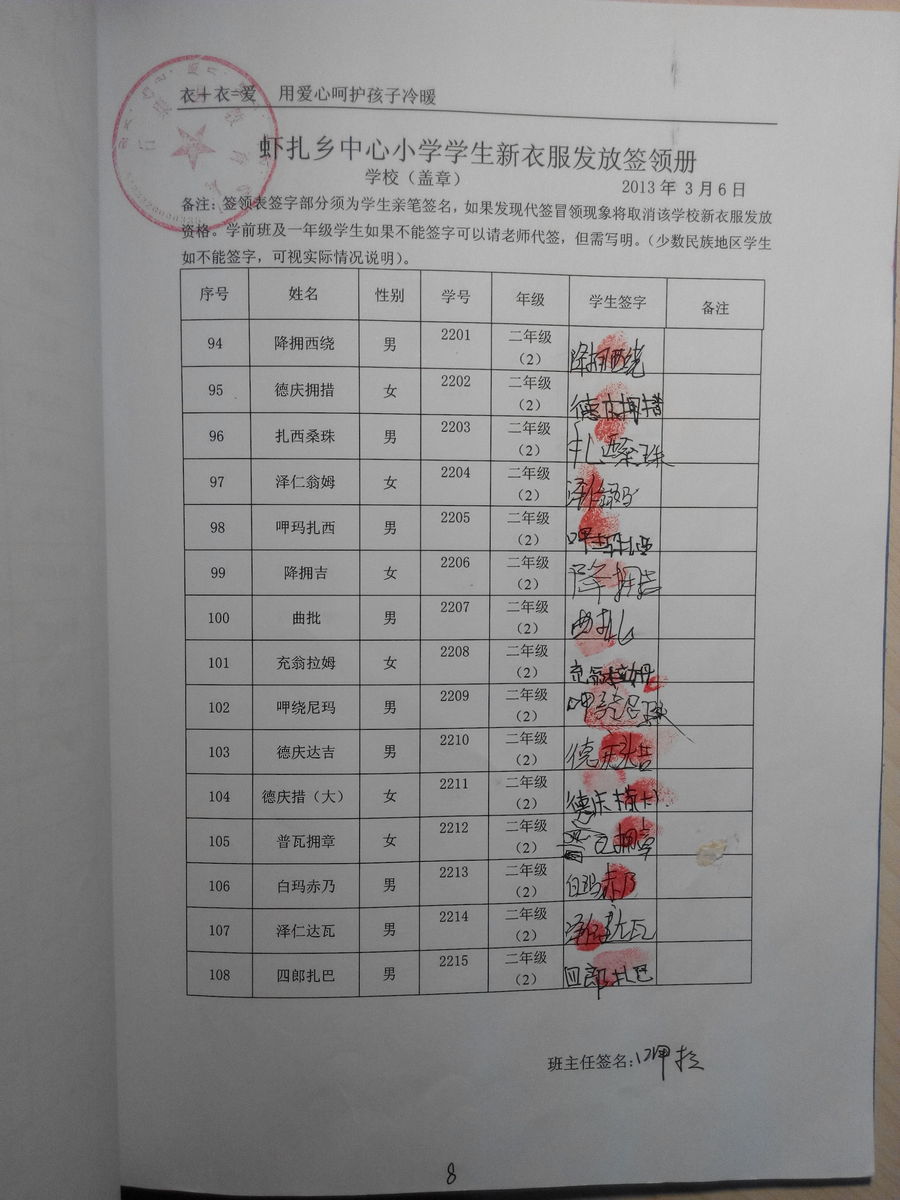 衣+衣=爱 用爱心呵护孩子冷暖
虾扎乡中心小学学生新衣服发放签领册
学校（盖章） 2013 年 3 月 6 日
备注：签领表签字部分须为学生亲笔签名，如果发现代签冒领现象将取消该学校新衣服发放
资格。学前班及一年级学生如果不能签字可以请老师代签，但需写明。（少数民族地区学生
如不能签字，可视实际情况说明）。
序号 姓名 性别 学号 年级 学生签字 备注
94 降拥西绕 男 2201 二年级（2） 降拥西绕
95 德庆拥措 女 2202 二年级（2） 德庆拥措
96 扎西桑珠 男 2203 二年级（2） 扎西桑珠
97 泽仁翁姆 女 2204 二年级（2）
98 呷玛扎西 男 2205 二年级（2） 呷玛扎西
99 降拥吉 女 2206 二年级（2） 降拥吉
100 曲批 男 2207 二年级（2）
101 充翁拉姆 女 2208 二年级（2） 充翁拉姆
102 呷绕尼玛 男 2209 二年级（2）
103 德庆达吉 男 2210 二年级（2）
104 德庆措（大） 女 2211 二年级（2） 德庆措大
105 普瓦拥章 女 2212 二年级（2） 拥章
106 白玛赤乃 男 2213 二年级（2） 白玛赤乃
107 泽仁达瓦 男 2214 二年级（2） 泽仁达瓦
108 四郎扎巴 男 2215 二年级（2） 四郎扎巴
班主任签名：呷拉
8